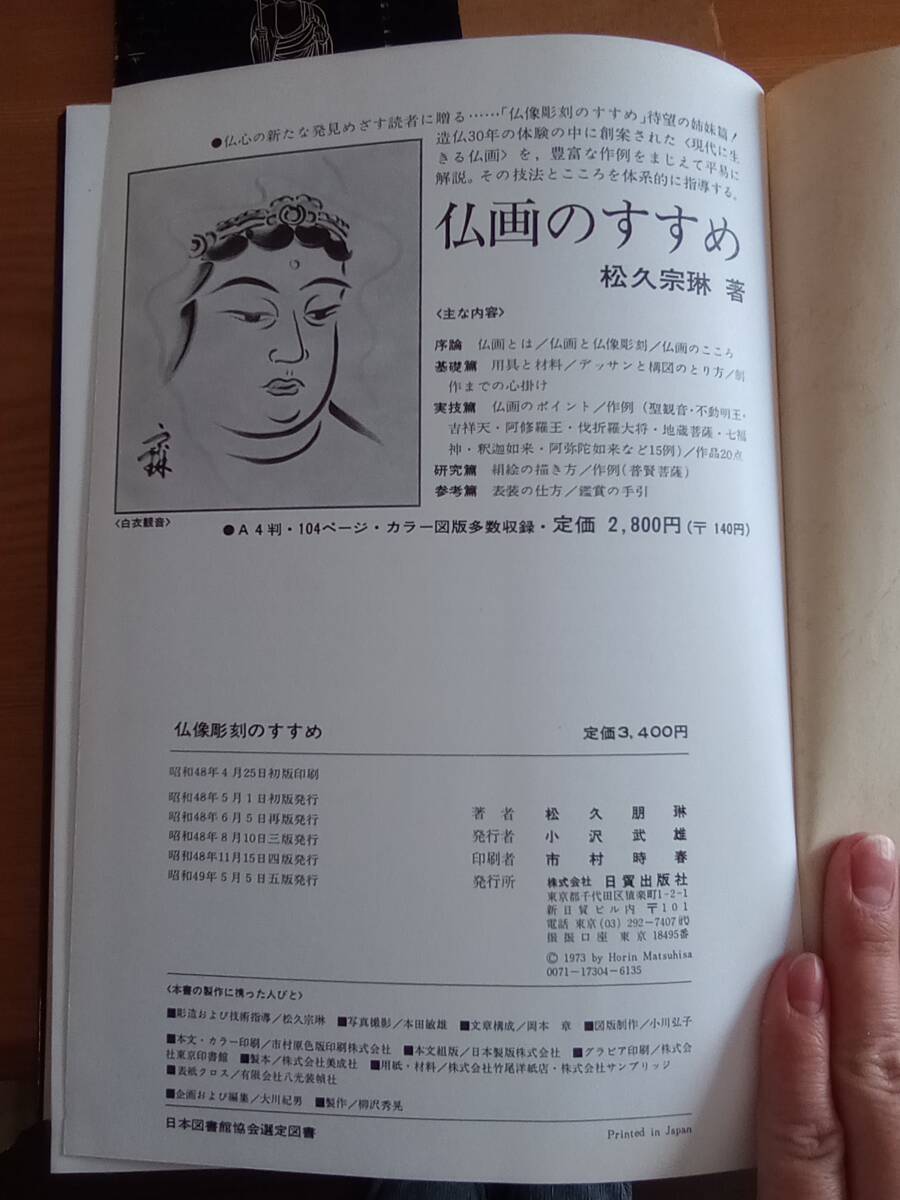 ●仏心の新たな発見めざす読者に贈る……「仏像彫刻のすすめ」待望の姉妹篇！
造仏30年の体験の中に創案された〈現代に生
きる仏画〉を，豊富な作例をまじえて平易に
解説。その技法とこころを体系的に指導する。
仏画のすすめ
松久宗琳 著
〈主な内容〉
序論 仏画とは／仏画と仏像彫刻／仏画のこころ
基礎篇 用具と材料／デッサンと構図のとり方／制
作までの心掛け
実技篇 仏画のポイント／作例（聖観音・不動明王・
吉祥天・阿修羅王・伐折羅大将・地蔵菩薩・七福
神・釈迦如来・阿弥陀如来など15例）／作品20点
研究篇 絹絵の描き方／作例（普賢菩薩）
参考篇 表装の仕方／鑑賞の手引
〈白衣観音〉
●A4判・104ページ・カラー図版多数収録・定価 2,800円（〒 140円）
仏像彫刻のすすめ 定価3,400円
昭和48年4月25日初版印刷
昭和48年5月1日初版発行
昭和48年6月5日再版発行
昭和48年8月10日三版発行
昭和48年11月15日四版発行
昭和49年5月5日五版発行
著者 松久朋琳
発行者 小沢武雄
印刷者 市村時春
発行所 株式会社 日貿出版社
東京都千代田区猿楽町1-2-1
新日貿ビル内 〒101
電話 東京(03) 292-7407代
振替口座 東京 18495番
© 1973 by Horin Matsuhisa
0071-17304-6135
〈本書の製作に携った人びと〉
■彫造および技術指導／松久宗琳 ■写真撮影／本田敏雄 ■文章構成／岡本 章 ■図版制作／小川弘子
■本文・カラー印刷／市村原色版印刷株式会社 ■本文組版／日本製版株式会社 ■グラビア印刷／株式会
社東京印書館 ■製本／株式会社美成社 ■用紙・材料／株式会社竹尾洋紙店・株式会社サンブリッジ
■表紙クロス／有限会社八光装幀社
■企画および編集／大川紀男 ■製作／柳沢秀晃
日本図書館協会選定図書
Printed in Japan